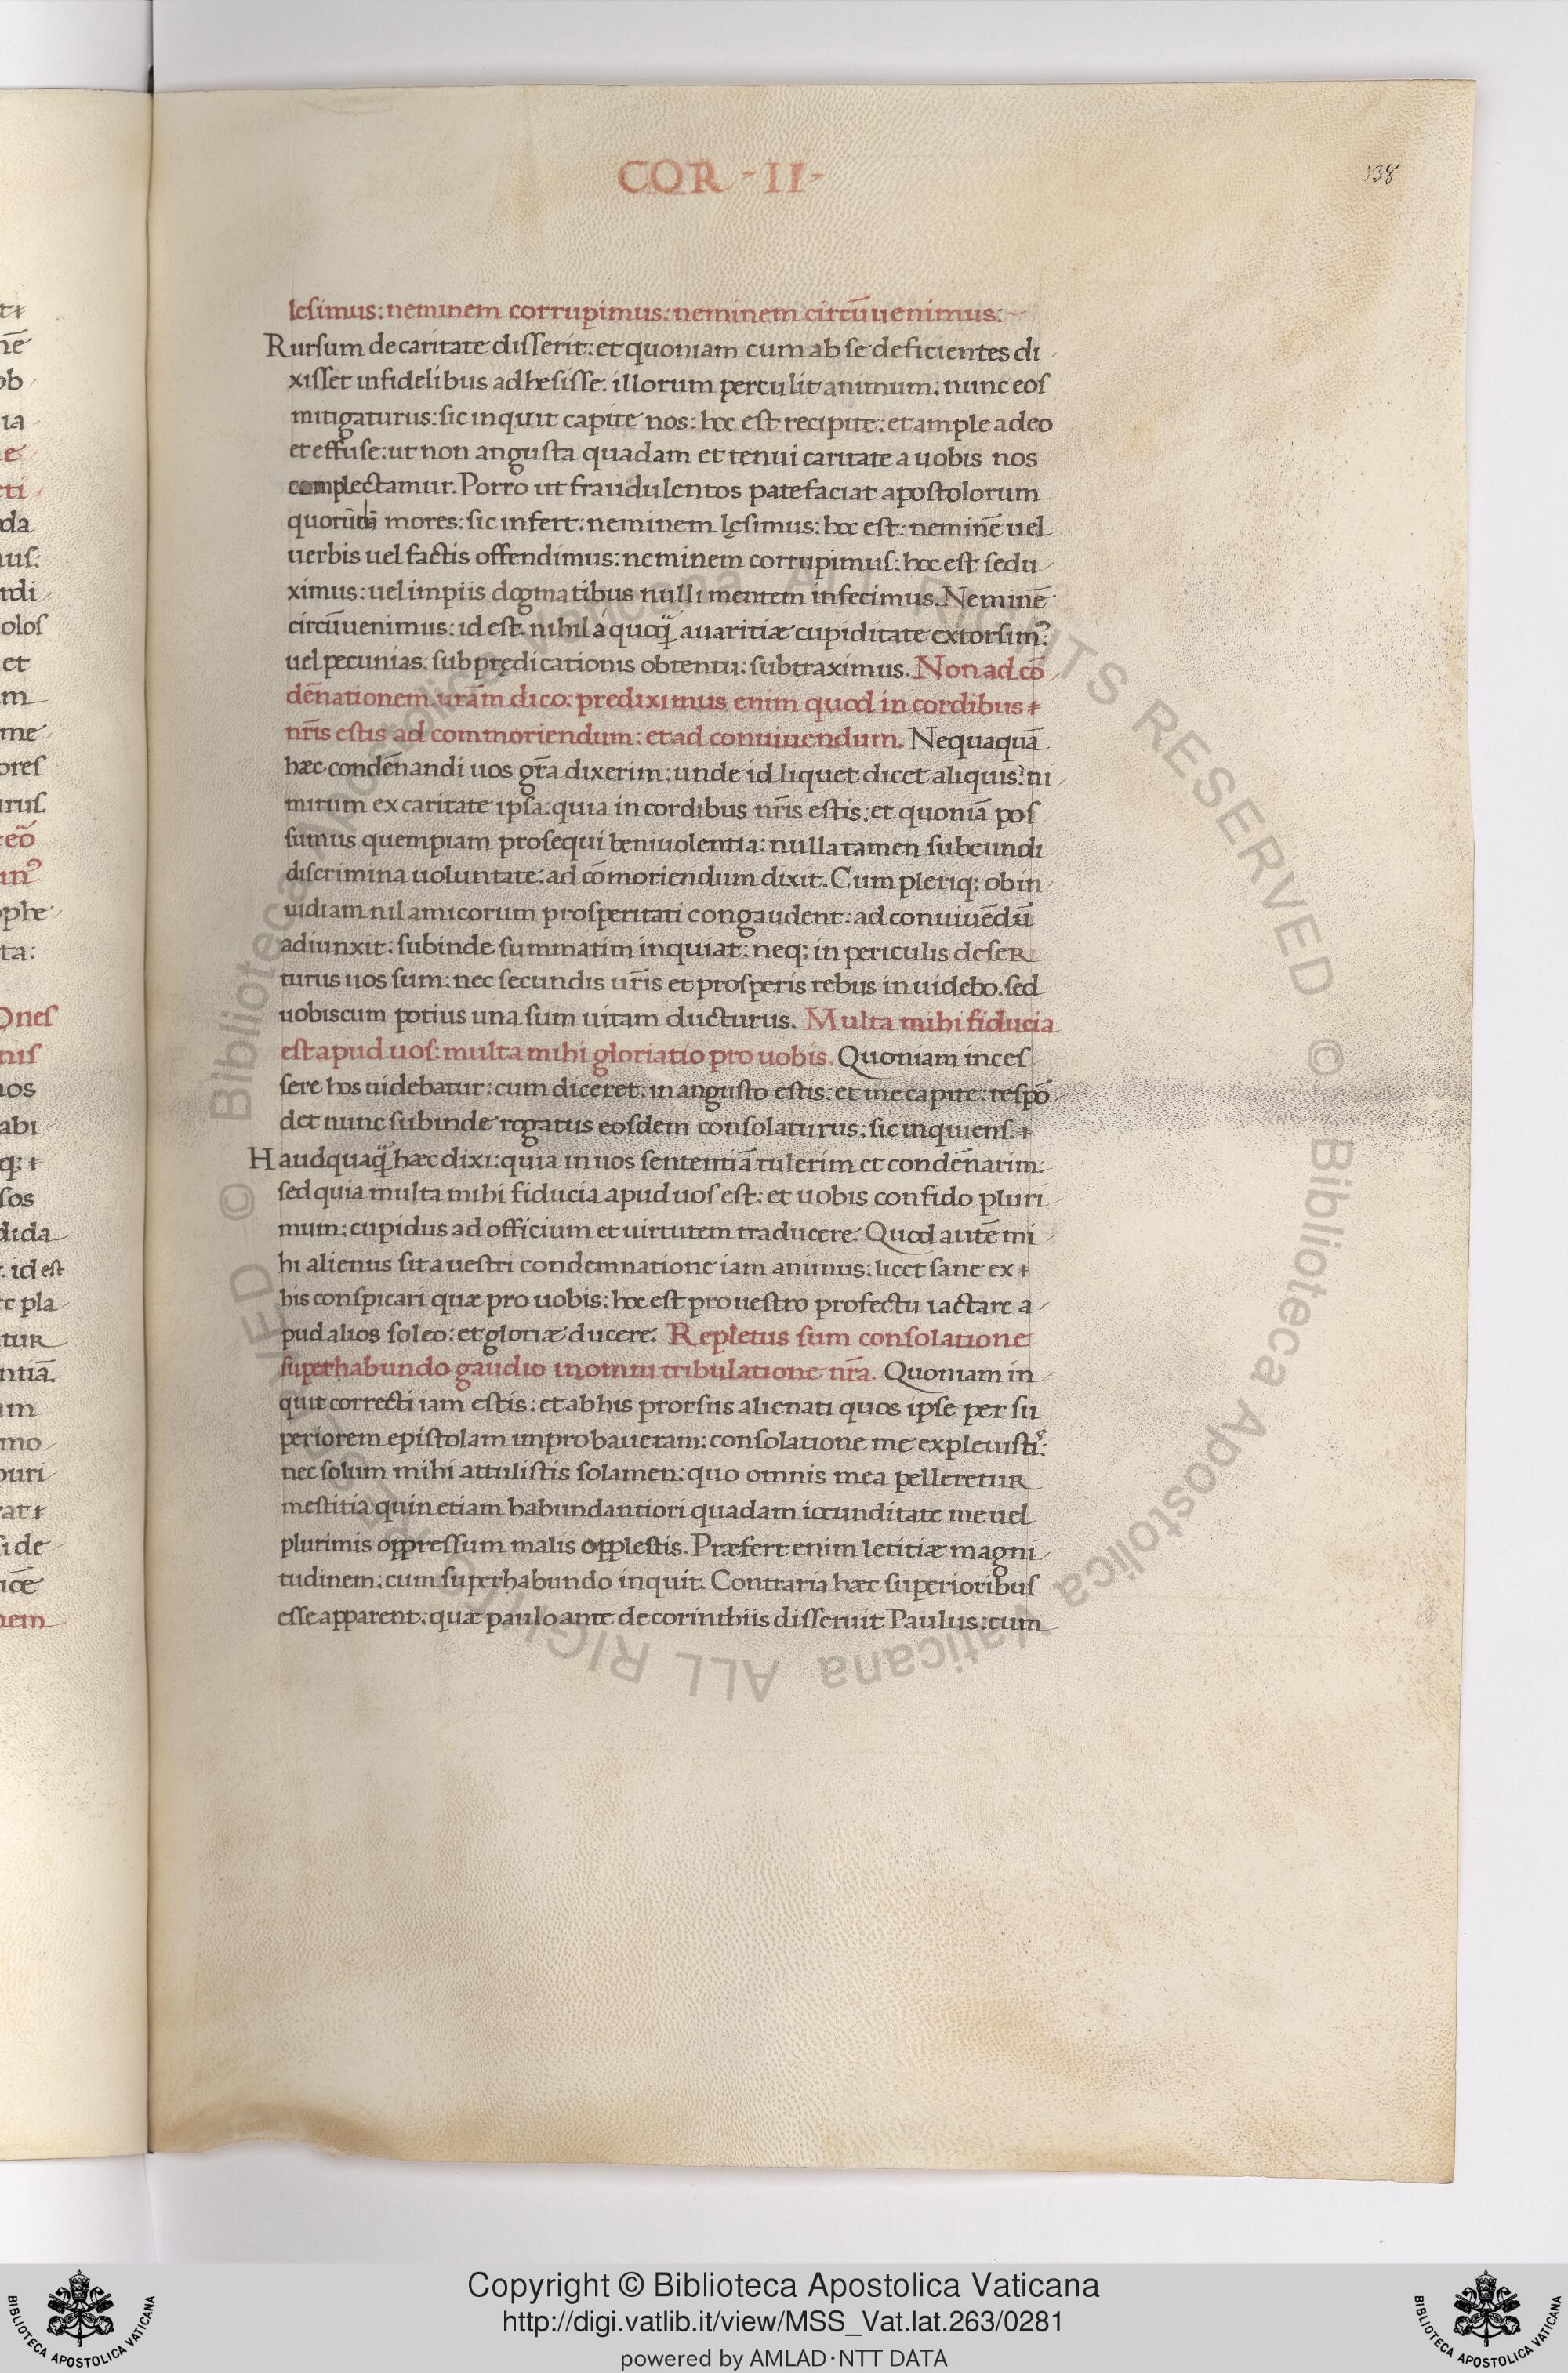 COR - II -
138
lesimus: neminem corrupimus: neminem circūuenimus:
Rursum de caritate disserit: et quoniam cum ab se deficientes di
xisset infidelibus adhesisse: illorum perculit animum: nunc eos
mitigaturus: sic inquit capite nos: hoc est recipite: et ample adeo
et effuse: ut non angusta quadam et tenui caritate a uobis nos
complectamur. Porro ut fraudulentos patefaciat apostolorum
quorūdā mores: sic infert: neminem lęsimus: hoc est: neminē uel
uerbis uel factis offendimus: neminem corrupimus: hoc est sedu
ximus: uel impiis dogmatibus nulli mentem infecimus. Neminē
circūuenimus: id est nihil á quoq̃ auaritiæ cupiditate extorsim9:
uel pecunias: sub prędicationis obtentu: subtraximus. Non ad cō
dēnationem ur̄am dico: prediximus enim quod in cordibus
nr̄is estis ad commoriendum: et ad conuiuendum. Nequaquā
hæc condēnandi uos gr̄a dixerim: unde id liquet dicet aliquis? ni
mirum ex caritate ipsa: quia in cordibus nr̄is estis: et quoniā pos
sumus quempiam prosequi beniuolentia: nulla tamen subeundi
discrimina uoluntate: ad cōmoriendum dixit. Cum pleriq; ob in
uidiam nil amicorum prosperitati congaudent: ad conuiuēdū
adiunxit: subinde summatim inquiat: neq; in periculis deser
turus uos sum: nec secundis ur̄is et prosperis rebus inuidebo. sed
uobiscum potius una sum uitam ducturus. Multa mihi fiducia
est apud uos: multa mihi gloriatio pro uobis. Quoniam inces
sere hos uidebatur: cum diceret: in angusto estis: et me capite: respō
det nunc subinde rogatus eosdem consolaturus: sic inquiens.
Haudquaq̃ hæc dixi: quia in uos sententiā tulerim et condēnarim:
sed quia multa mihi fiducia apud uos est: et uobis confido pluri
mum: cupidus ad officium et uirtutem traducere. Quod autē mi
hi alienus sit a uestri condemnatione iam animus: licet sane ex
his conspicari quæ pro uobis: hoc est pro uestro profectu iactare a
pud alios soleo: et gloriæ ducere. Repletus sum consolatione
superhabundo gaudio in omni tribulatione nr̄a. Quoniam in
quit correcti iam estis: et ab his prorsus alienati quos ipse per su
periorem epistolam improbaueram: consolatione me expleuistis:
nec solum mihi attulistis solamen: quo omnis mea pelleretur
mestitia quin etiam habundantiori quadam iocunditate me uel
plurimis oppressum malis opplestis. Præfert enim letitiæ magni
tudinem: cum superhabundo inquit. Contraria hæc superioribus
esse apparent: quæ paulo ante de corinthiis disseruit Paulus: cum
Copyright © Biblioteca Apostolica Vaticana
http://digi.vatlib.it/view/MSS_Vat.lat.263/0281
powered by AMLAD·NTT DATA